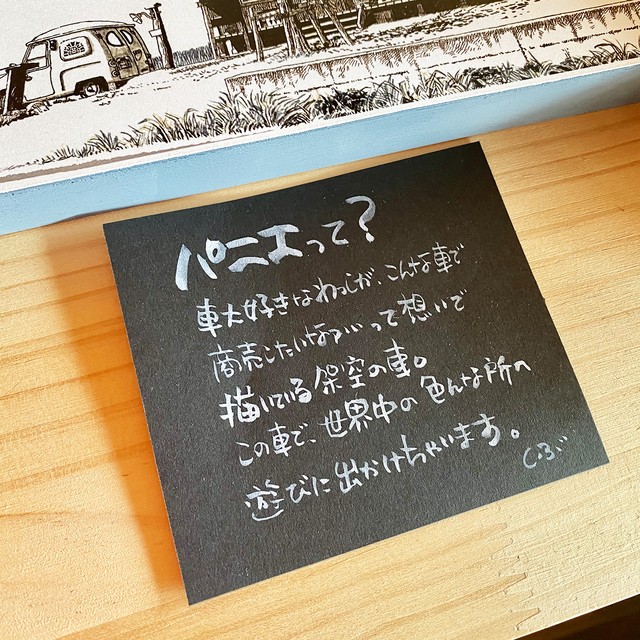 パニエって?
車大好きなわっしが、こんな車で
商売したいなぁぃって想いで
描いている架空の車。
この車で、世界中の色んな所へ
遊びに出かけちゃいます。